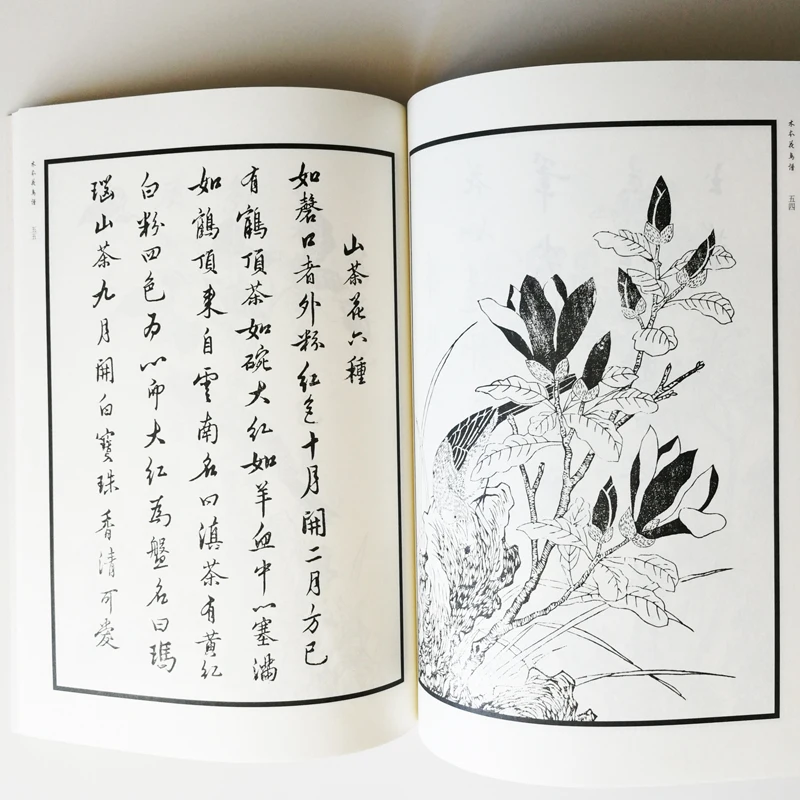 木本花鳥譜
五四
山茶花六種
如磬口者外粉紅色十月開二月方已
有鶴頂茶如碗大紅如羊血中心塞滿
如鶴頂來自雲南名曰滇茶有黃紅
白粉四色為心而大紅為盤名曰瑪
瑙山茶九月開白寶珠香清可愛
木本花鳥譜
五五